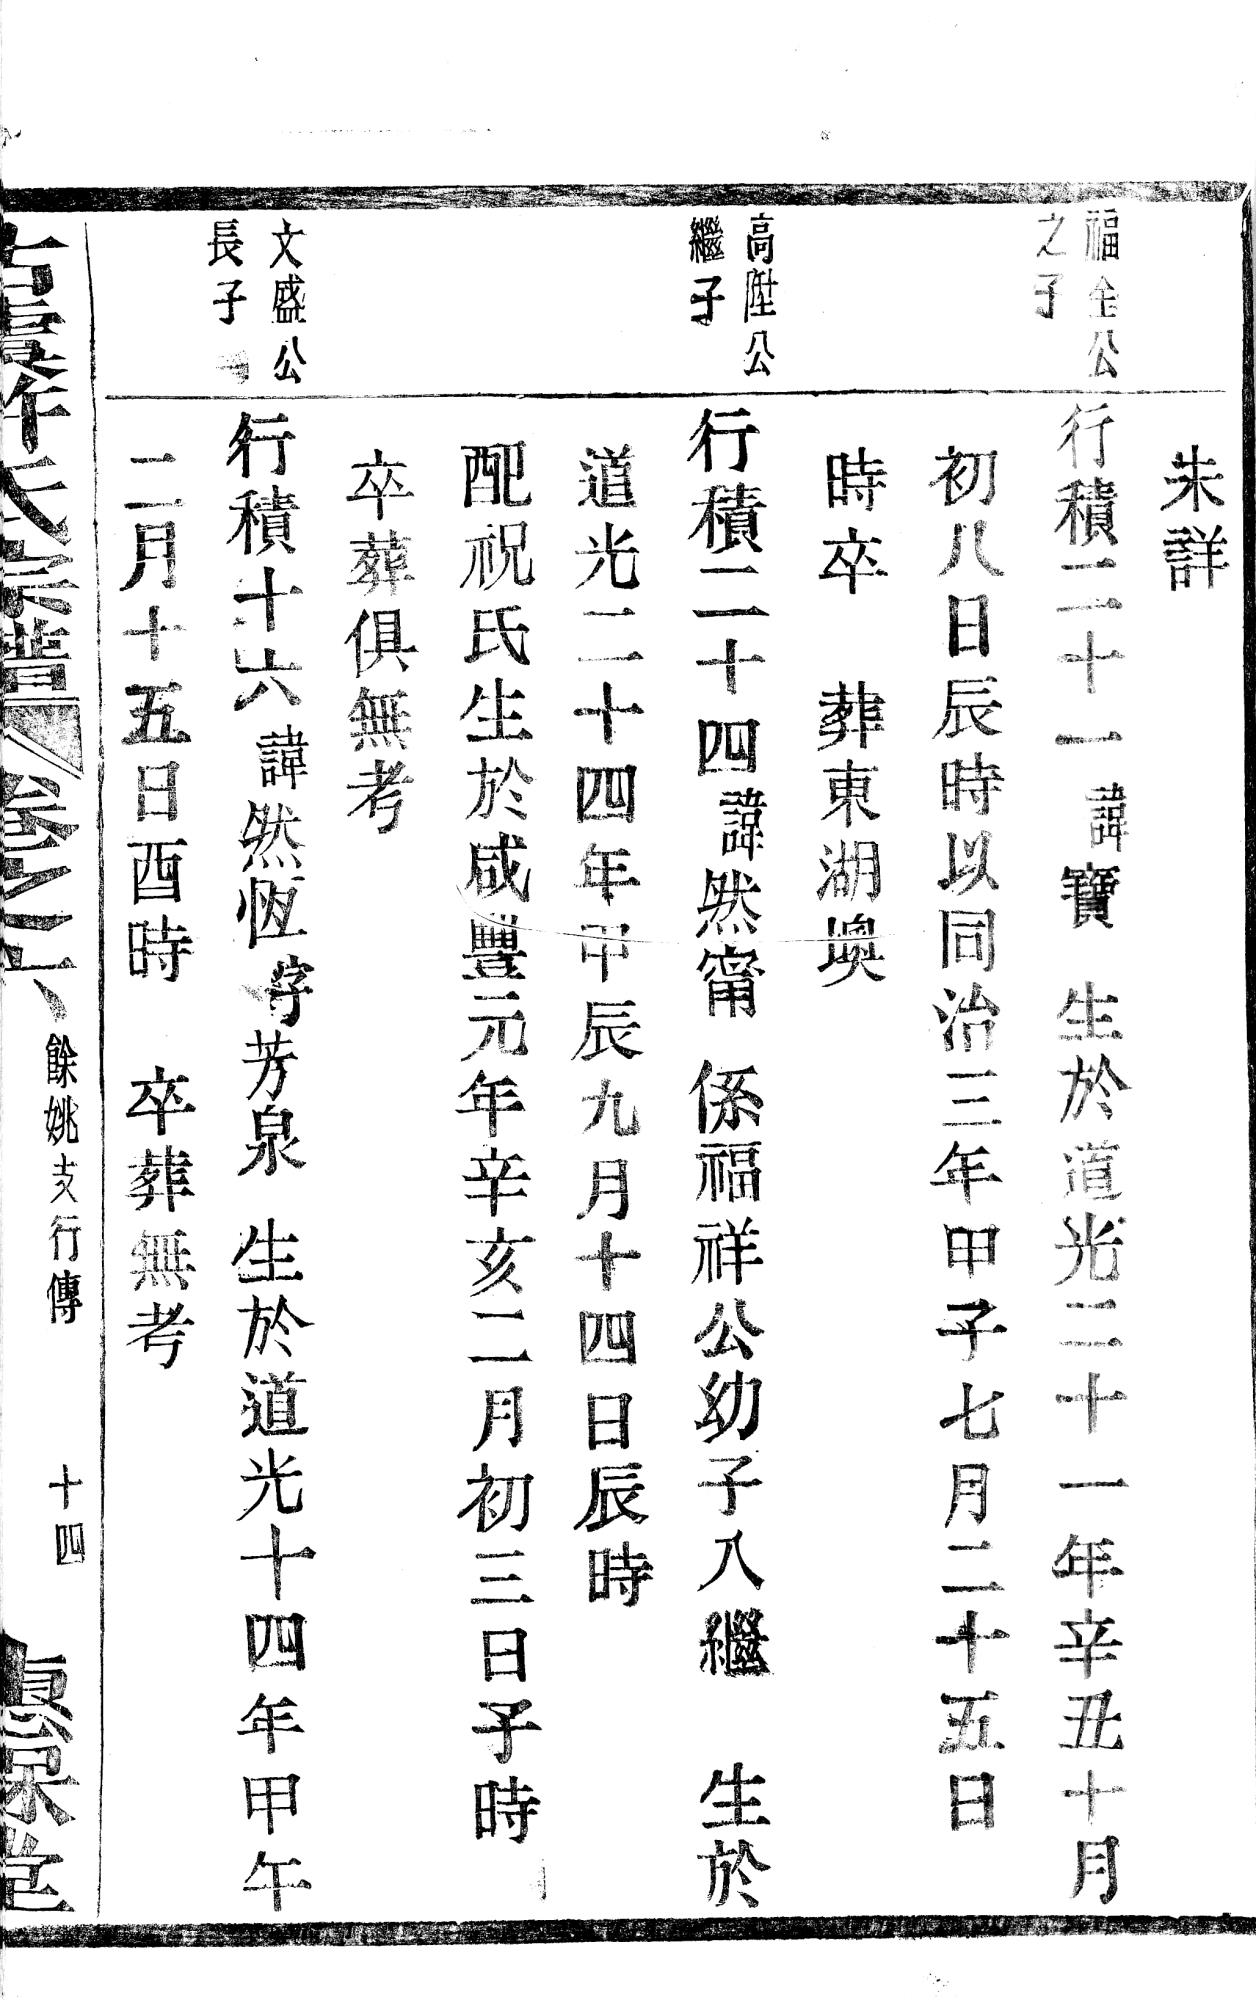 未詳
福全公
之子
行積二十一諱寶　生於道光二十一年辛丑十月
初八日辰時以同治三年甲子七月二十五日
時卒　葬東湖墺
高陞公
繼子
行積二十四諱然甯　係福祥公幼子入繼　生於
道光二十四年甲辰九月十四日辰時
配祝氏生於咸豐元年辛亥二月初三日子時
卒葬俱無考
文盛公
長子
行積十六諱然恆字芳泉　生於道光十四年甲午
二月十五日酉時　卒葬無考
氏宗譜　卷之六　餘姚支行傳　十四